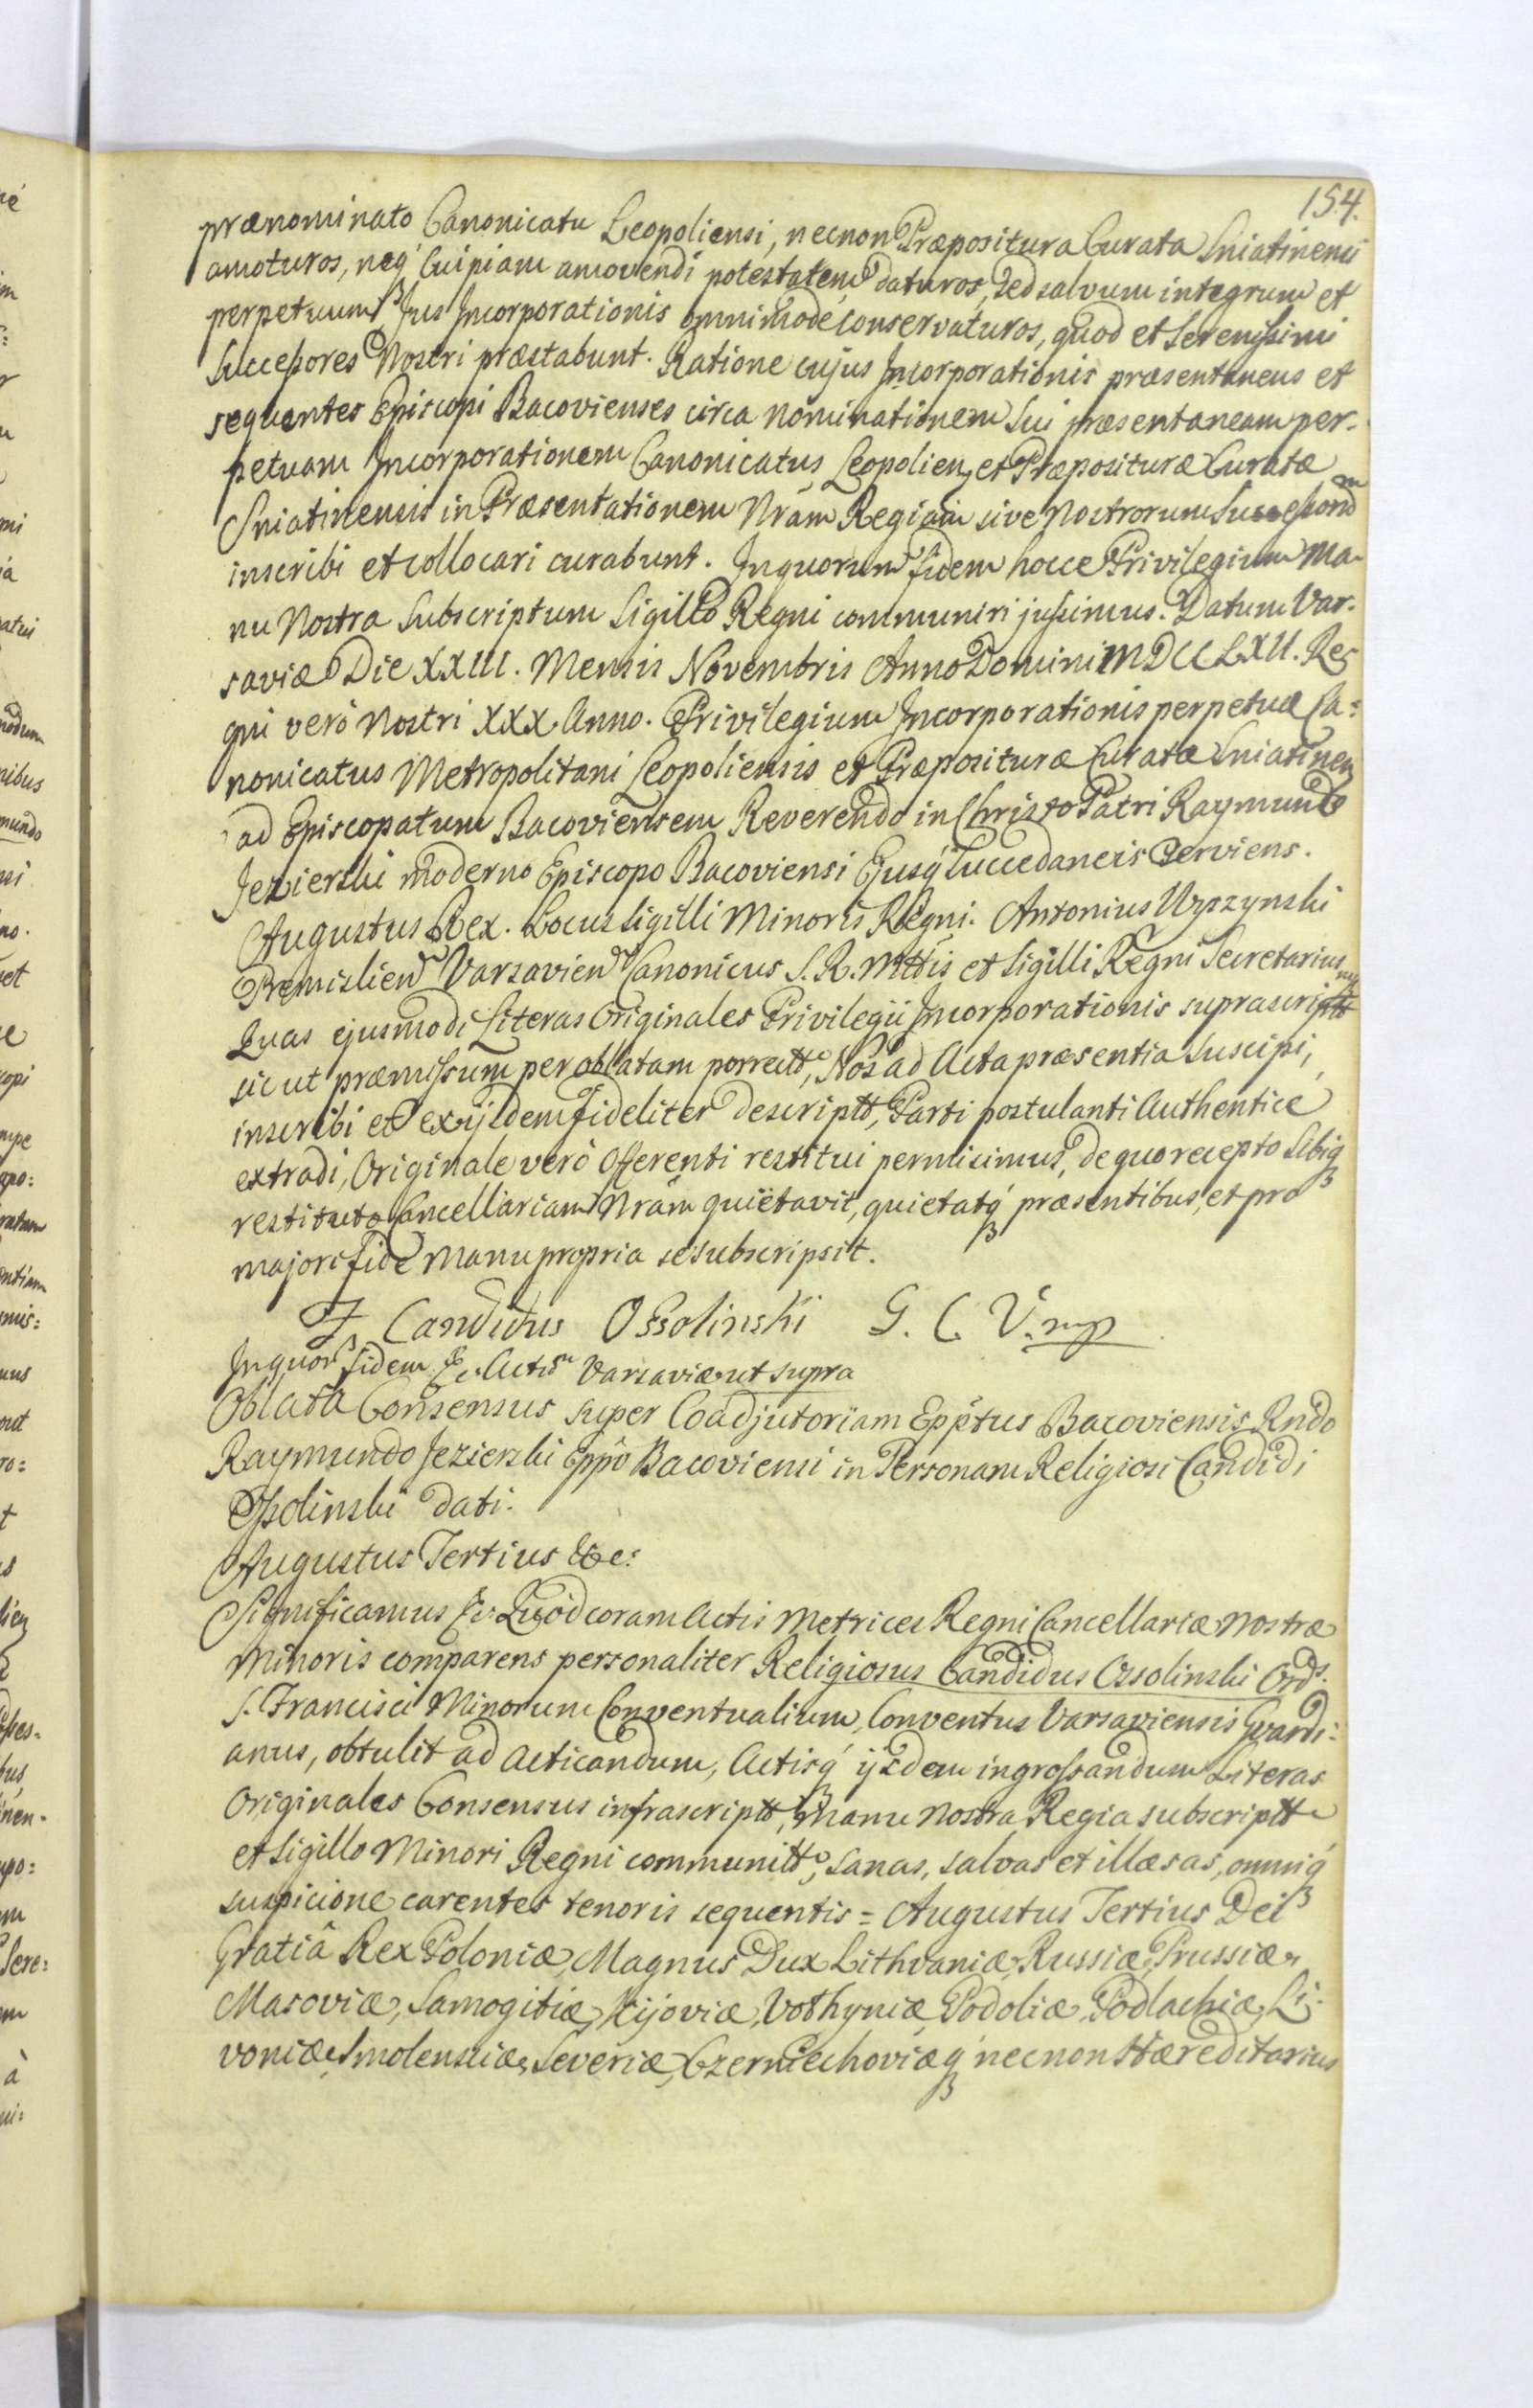 154.
prænominato Canonicatu Leopoliensi, necnon Præpositura Curata Sniatinensi
amoturos, neq́ Cuipiam amovendi potestatem daturos, sed salvum integrum et
perpetuum Jus Incorporationis omnimodè conservaturos, quod et Serenissimi
Successores Nostri præstabunt. Ratione cujus Incorporationis præsentaneus et
sequentes Episcopi Bacovienses circa nominationem Sui præsentaneam per-
petuam Incorporationem Canonicatus Leopolien, et Præposituræ Curatæ
Sniatinensis in Præsentationem Nrãm Regiam sive Nostrorum Successorũ
inscribi et collocari curabunt. In quorum Fidem hocce Privilegium Ma-
nu Nostra Subscriptum Sigillo Regni communiri jussimus. Datum Var-
saviæ Die XXIII. Mensis Novembris Anno Domini MDCCLXII. Re
gni verò Nostri XXX Anno. Privilegium Incorporationis perpetuæ Ca=
nonicatus Metropolitani Leopoliensis et Præposituræ Curatæ Sniatinen
ad Episcopatum Bacoviensem Reverendo in Christo Patri Raymundo
Jezierski moderno Episcopo Bacoviensi Ejusq́ Succedaneis Serviens.
Augustus Rex. Locus Sigilli Minoris Regni. Antonius
Premislien Varsavien Canonicus S. R. Mttis et Sigilli Regni Secretarius
Quas ejusmodi Literas Originales Privilegii Incorporationis suprascriptt
sicut præmissum per oblatam porrectt, Nos ad Acta præsentia Suscipi,
inscribi et exijsdem fideliter descriptt, Parti postulanti Authenticè
extradi, Originale verò Offerenti restitui permisimus, de quo recepto Sibiq
restituto Cancellariam Nrãm quietavit, quietatq́ præsentibus, et pro
majori fide Manu propria se subscripsit.
F Candidus Ossolinski G. C. V. mp
In quor fidem &c. Actum Varsaviæ ut supra
Oblata Consensus super Coadjutoriam Eppẽtus Bacoviensis Rndo
Raymundo Jezierski Eppõ Bacoviensi in Personam Religiosi Candidi
Ossolinski Dati.
Augustus Tertius &c:
Significamus &c. Quòd coram Actis Metrices Regni Cancellariæ Nostræ
Minoris comparens personaliter Religiosus Candidus Ossolinski Ords.
S. Francisci Minorum Conventualium, Conventus Varsaviensis Gvardi:
anus, obtulit ad Acticandum, Actisq́ ijsdem ingrossandum Literas
Originales Consensus infrascriptt, Manu Nostra Regia subscriptt
et Sigillo Minori Regni communitt, sanas, salvas et illæsas, omniq́
suspicione carentes tenoris sequentis = Augustus Tertius Dei
Gratiâ Rex Poloniæ, Magnus Dux Lithvaniæ, Russiæ, Prussiæ,
Masoviæ, Samogitiæ, Kijoviæ, Volhyniæ, Podoliæ, Podlachiæ, Li-
voniæ, Smolensciæ, Severiæ, Czerniechoviæq́ necnon Hæreditarius